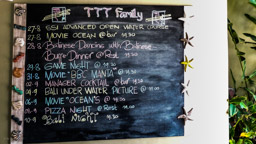 TTT Family
27-8 SSI ADVANCED OPEN WATER COURSE
27-8 MOVIE OCEAN @ bar 19.30
28-8 Balinese Dancing with Balinese
Buffet Dinner @ Rest 19.30
29-8 GAME NIGHT @ 19.30
31-8 MOVIE "BBC MANTA" @ 19.30
02-9 MANAGER COCKTAIL @ bar 19.00
04-9 BALI UNDER WATER PICTURE @ 19.00
06-9 MOVIE "OCEAN'S @ 19.00
09-9 PIZZA NIGHT @ Rest 19.00
10-9 Bali Night 19.30